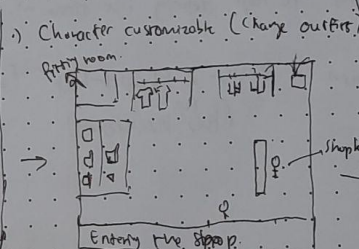 ) Character customizable (Change outfits,
fitting room
Shopk
Entering the shop.